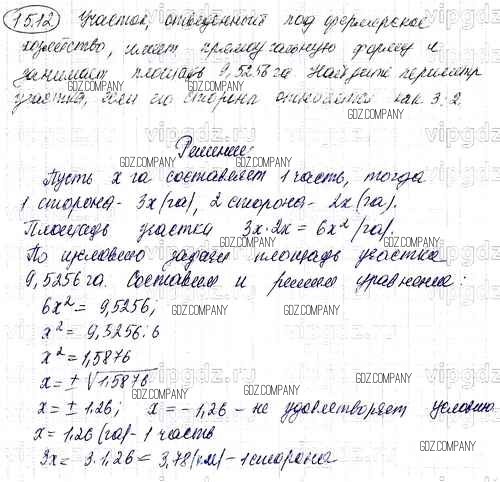 15.12 Участок, отведенный под фермерское
хозяйство, имеет прямоугольную форму и
занимает площадь 9,5256 га Найдите периметр
участка, если его стороны относятся как 3:2
Решение:
Пусть x га составляет 1 часть, тогда
1 сторона - 3x (га), 2 сторона - 2x (га).
Площадь участка 3x·2x = 6x² (га).
По условию задачи площадь участка
9,5256 га. Составим и решим уравнение:
6x² = 9,5256;
x² = 9,5256:6
x² = 1,5876
x = ± √1,5876
x = ± 1,26; x = - 1,26 - не удовлетворяет условию
x = 1,26 (га) - 1 часть
3x = 3·1,26 = 3,78 (км) - 1 сторона